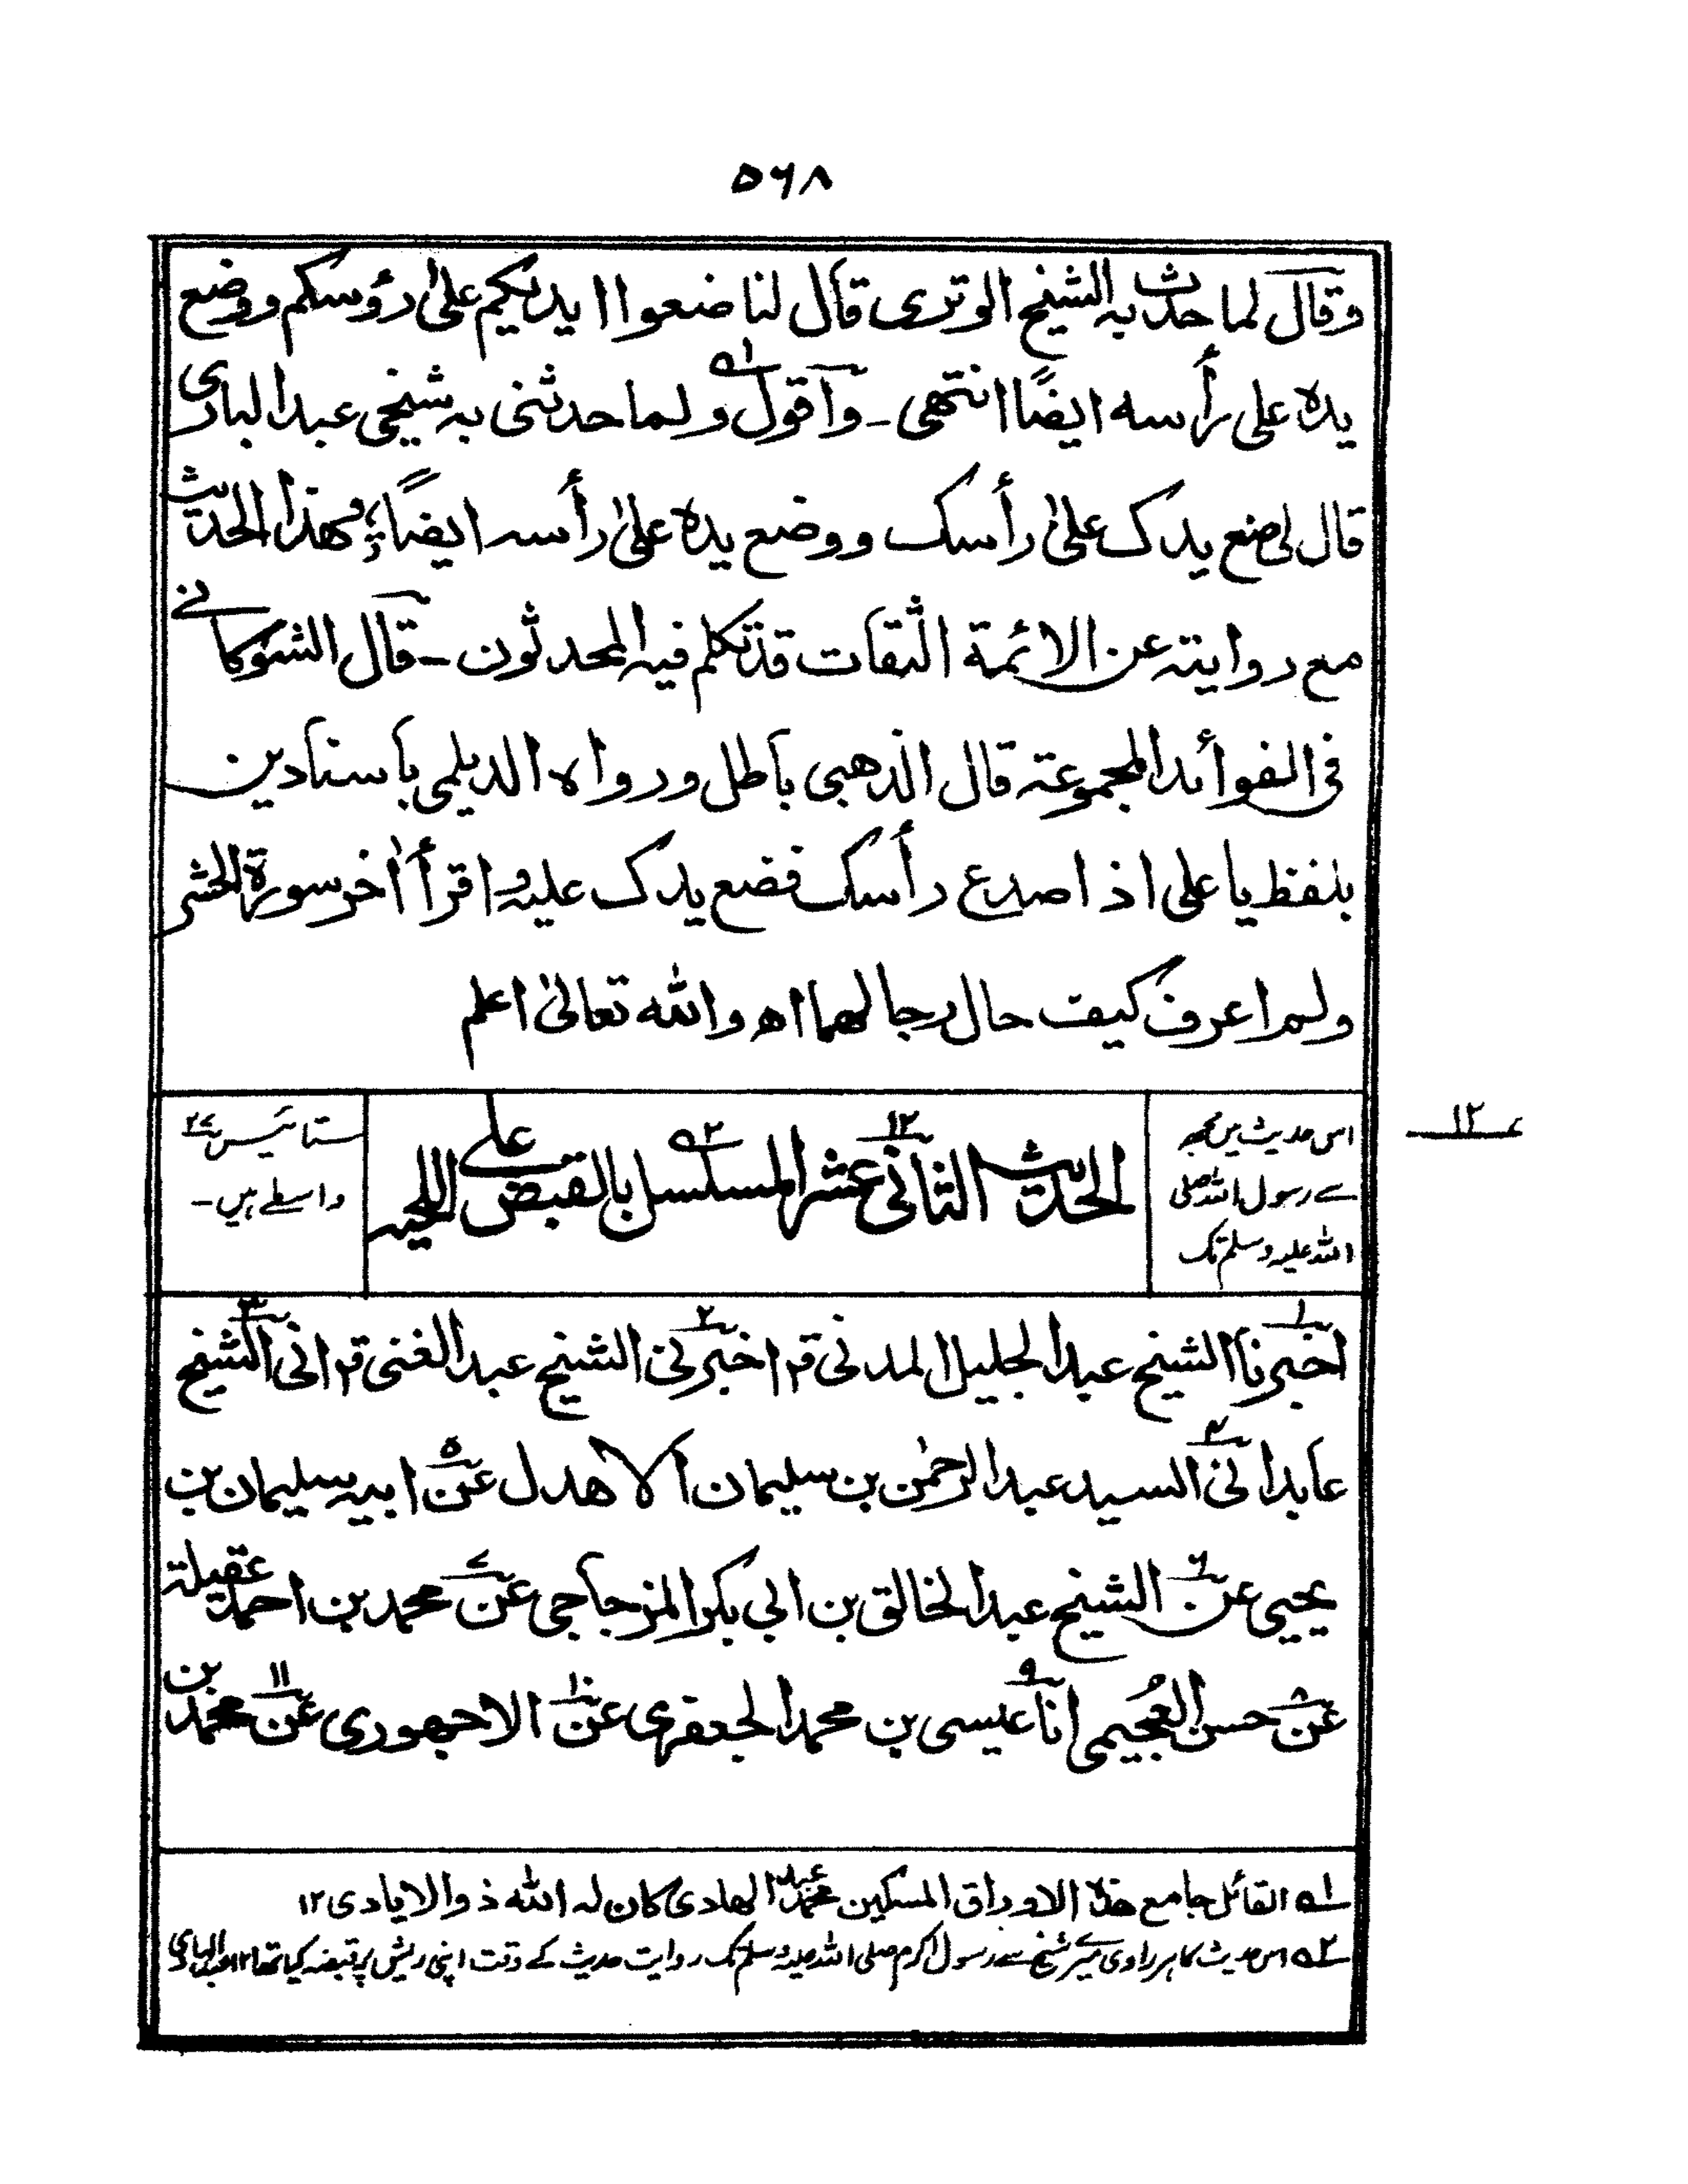 ۵۶۸
وقال لما حدث به الشيخ الوترى قال لنا ضعوا ايديكم على رؤسكم ووضع
يده على رأسه ايضًا انتهى ـ وأقول له ولما حدثنى به شيخى عبد البارى
قال لى ضع يدك على رأسك ووضع يده على رأسه ايضًا؛ وهذا الحديث
مع روايته عن الائمة الثقات قد تكلم فيه المحدثون ـ قال الشوكانے
فى الفوائد المجموعة قال الذهبى باطل ورواه الديلمى باسنادين
بلفظ يا على اذا صدع رأسك فضع يدك عليه واقرأ أخر سورة الحشر
ولم اعرف كيف حال رجالهما اه والله تعالىٰ اعلم
۱۲
اس حدیث میں مجھ
سے رسول اللہ صلی
اللہ علیہ وسلم تک
الحديث الثانى عشر ۱۲ المسلسل ۲ه بالقبض على اللحيه
ستائیس ۲۷
واسطے ہیں ـ
۱ اخبرنا الشيخ عبد الجليل المدنى قال ۲ اخبرنى الشيخ عبد الغنى قال ۳ انى الشيخ
عابد ۴ انى السيد عبد الرحمٰن بن سليمان الاهدل ۵ عن ابيه سليمان بن
يحيى ۶ عن الشيخ عبد الخالق بن ابى بكر المزجاجى ۷ عن محمد بن احمد عقيلة
۸ عن حسن العُجيمى ۹ انا عيسى بن محمد الجعفرى ۱۰ عن الاجهورى ۱۱ عن محمد بن
۱ه القائل جامع هذه الاوراق المسكين محمد عبد الهادى كان له الله ذو الايادى ۱۲
۲ه اس حدیث کا ہر راوی میرے شیخ سے رسول اکرم صلی اللہ علیہ وسلم تک روایت حدیث کے وقت اپنی ریش پر قبضہ کیا تھا ۱۲ عبد الہادی